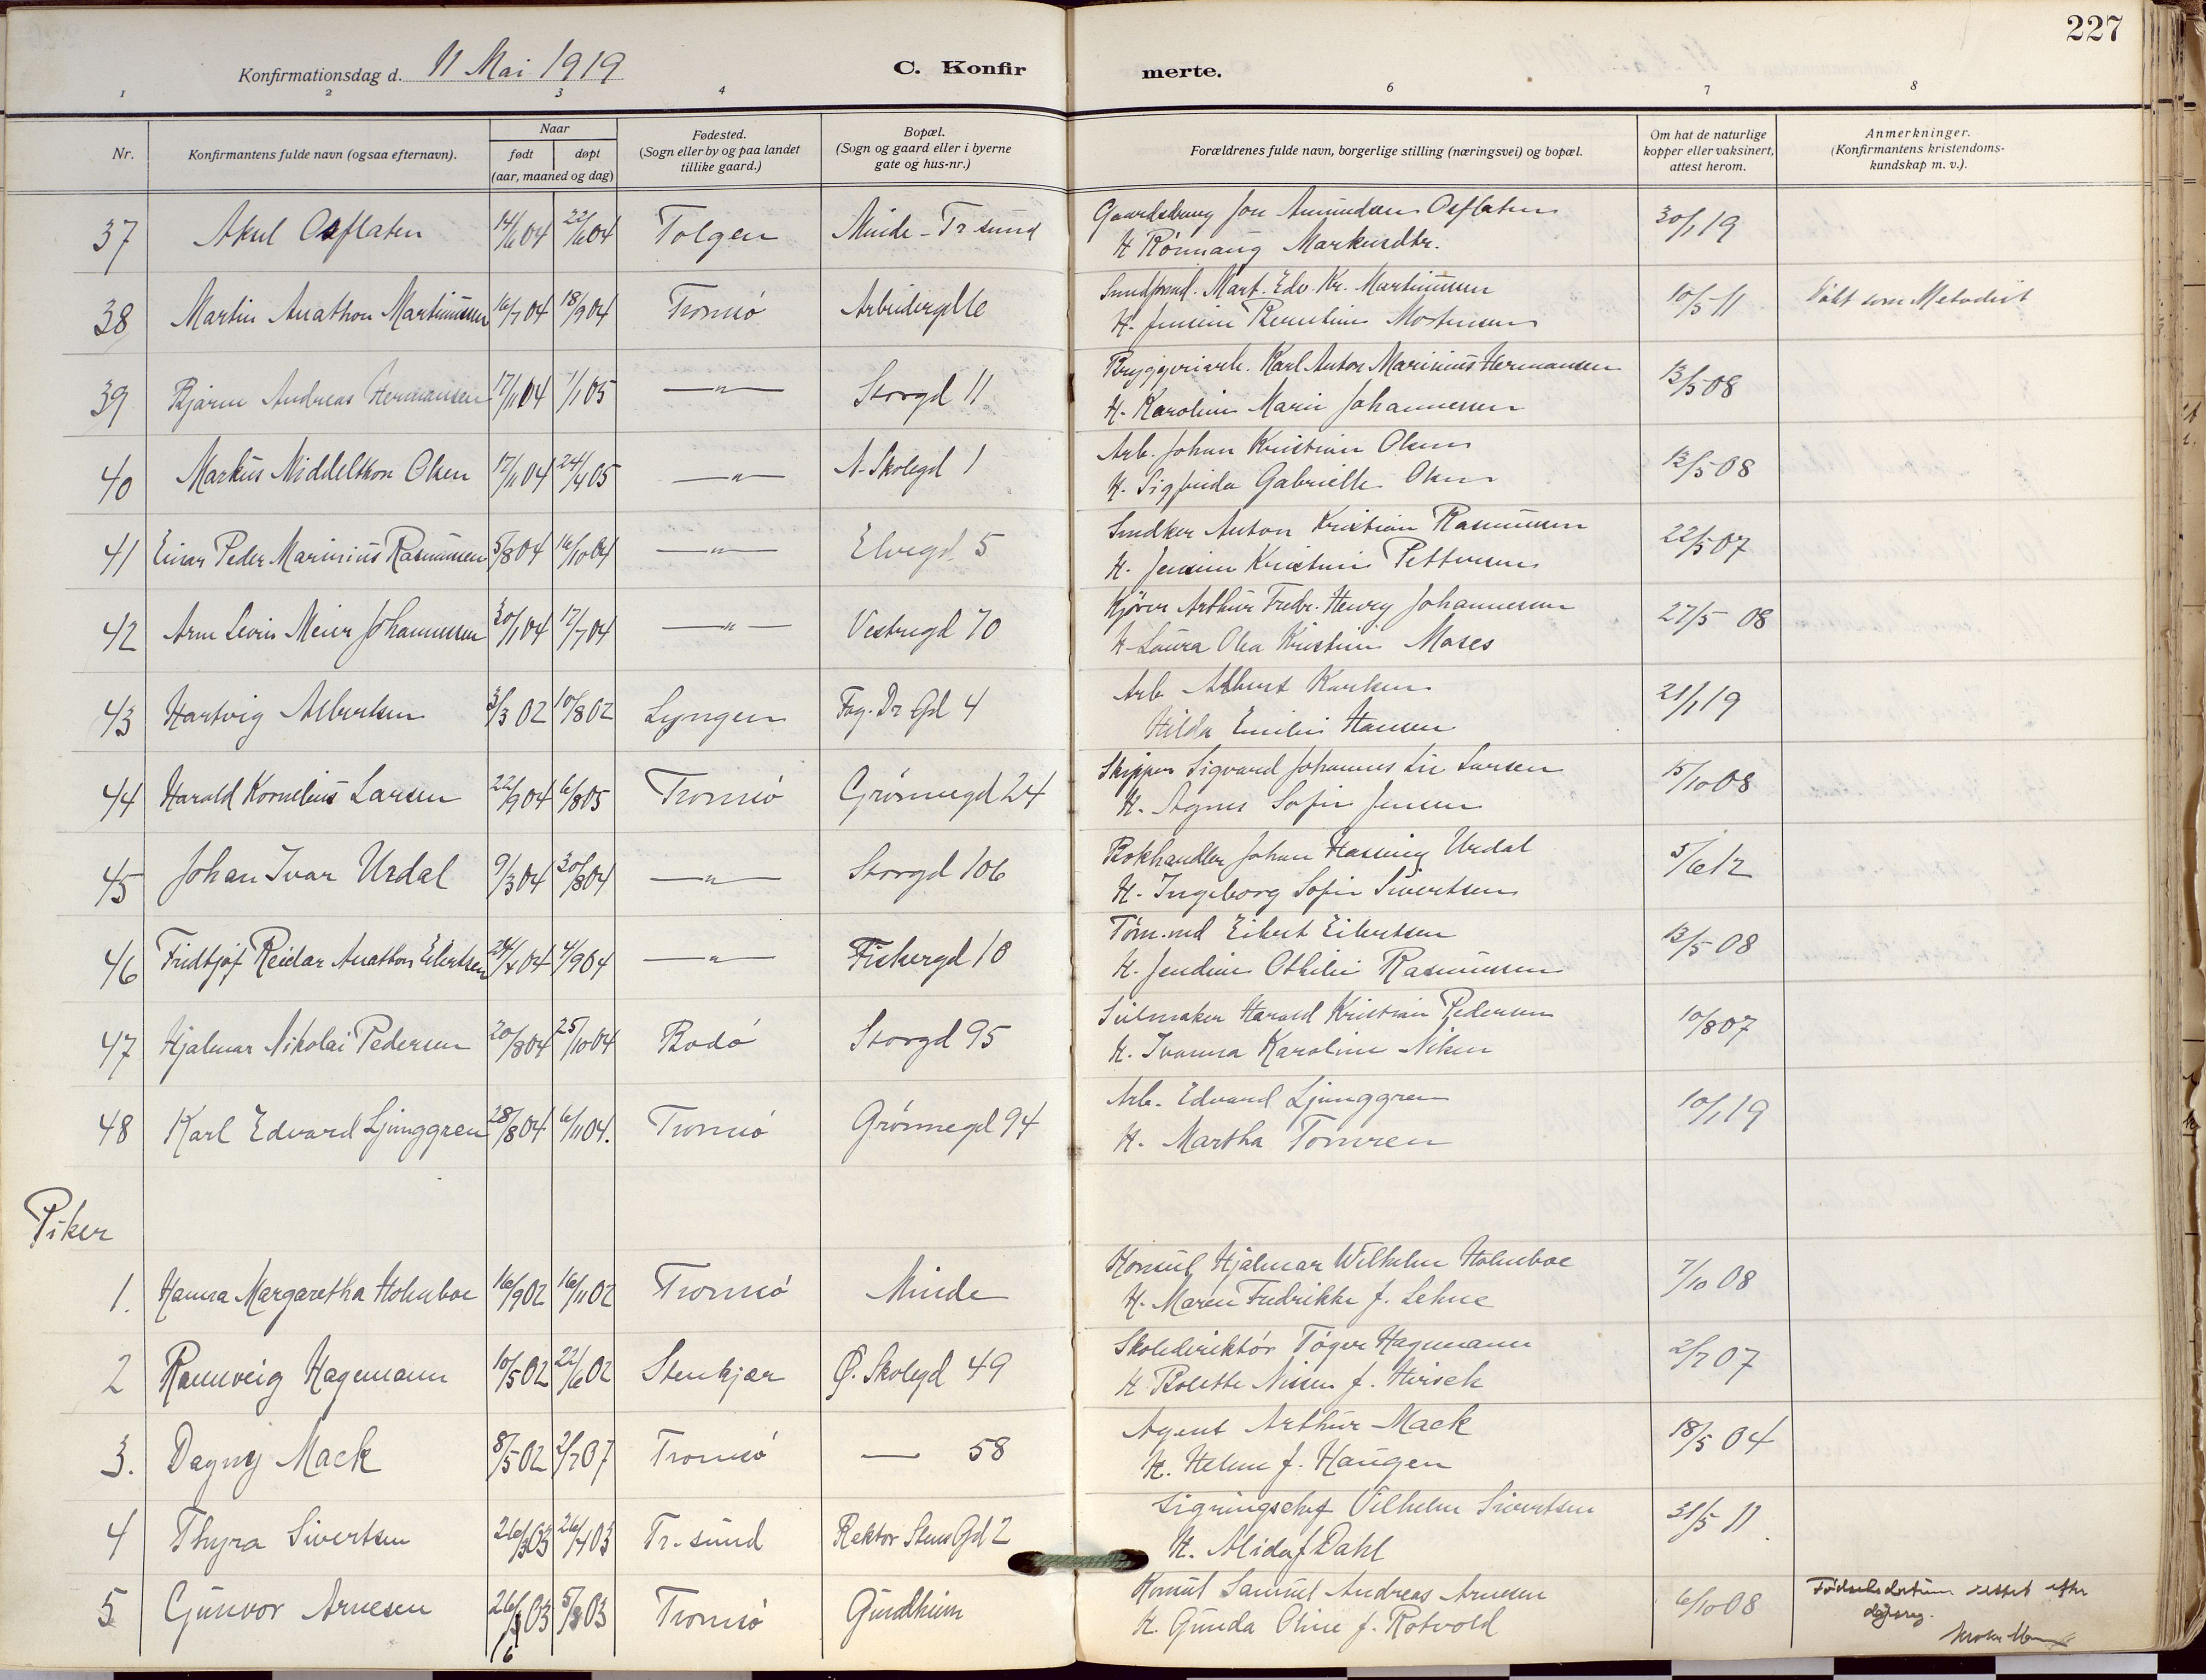 227
Konfirmationsdag d. 11 Mai 1919
C. Konfirmerte.
1 2 3 4 6 7 8
Nr.
Konfirmantens fulde navn (ogsaa efternavn).
Naar
født døpt
(aar, maaned og dag)
Fødested.
(Sogn eller by og paa landet
tillike gaard.)
Bopæl.
(Sogn og gaard eller i byerne
gate og hus-nr.)
Forældrenes fulde navn, borgerlige stilling (næringsvei) og bopæl.
Om hat de naturlige
kopper eller vaksinert,
attest herom.
Anmerkninger.
(Konfirmantens kristendoms-
kundskap m. v.).
37 Aksel Osflaten 14/6 04 22/6 04 Tolgen Minde - Tr sund Jon Amundsen Osflaten 30/1 19
H Rönnaug Markusdtr.
38 Martin Anathon Martinussen 16/7 04 18/9 04 Tromsö Mart. Edv. Kr. Martinussen 10/5 11 Döbt som Metodist
H. Jensine Berntine Mortensen
39 Bjarne Andreas Hermansen 17/11 04 1/1 05 —"— Storgd 11 Bryggeriarb. Karl Anton Marinius Hermansen 13/5 08
H. Karoline Marie Johannessen
40 Markus Middelthon Olsen 17/11 04 24/4 05 —"— N. Skolegd 1 Arb. Johan Kristian Olsen 12/5 08
H. Sigfrida Gabrielle Olsen
41 Einar Peder Marinius Rasmussen 5/8 04 16/10 04 —"— Elvegd. 5 Snedker Anton Kristian Rasmussen 22/5 07
H. Jensine Kristine Pettersen
42 Arne Levin Meier Johannessen 30/1 04 17/7 04 —"— Vestregd 70 Kjörer Arthur Fredr. Henry Johannessen 27/5 08
H. Laura Olea Kristine Moses
43 Hartvig Albertsen 3/3 02 10/8 02 Lyngen Fog. Dr Gd 4 Arb Albert Karlsen 21/1 19
Hilda Emilie Hansen
44 Harald Kornelius Larsen 22/9 04 6/8 05 Tromsö Grönnegd 24 Skipper Sigvard Johannes Lie Larsen 15/10 08
H. Agnes Sofie Jensen
45 Johan Ivar Urdal 9/3 04 30/8 04 —"— Storgd 106 Bokhandler Johan Hassing Urdal 5/6 12
H. Ingeborg Sofie Sivertsen
46 Fridtjof Reidar Anathon Eilertsen 24/4 04 4/9 04 —"— Fiskergd 10 Töm.md Eilert Eilertsen 13/5 08
H. Jendine Othilie Rasmussen
47 Hjalmar Nikolai Pedersen 20/8 04 25/10 04 Bodö Storgd 95 Seilmaker Harald Kristian Pedersen 10/8 07
H. Ivanna Karoline Nilsen
48 Karl Edvard Ljunggren 28/8 04 6/11 04. Tromsö Grönnegd 94 Arb. Edvard Ljunggren 10/1 19
H. Martha Tomren
Piker
1. Hanna Margaretha Holmboe 16/9 02 16/11 02 Tromsö Minde Konsul Hjalmar Wilhelm Holmboe 7/10 08
H. Maren Fredrikke f. Lehne
2 Rannveig Hagemann 10/5 02 22/6 02 Stenkjær Ø. Skolegd 49 Skoledirektör Töger Hagemann 2/7 07
H Bolette Nissen f. Hirsch
3. Dagny Mack 8/5 02 2/7 07 Tromsö — 58 Agent Arthur Mack 18/5 04
H. Helene f. Haugen
4 Thyra Sivertsen 26/3 03 26/4 03 Tr. sund Rektor Stens Gd 2 Ligningschef Vilhelm Sivertsen 31/5 11
H. Alida f Dahl
5 Gunvor Arnesen 26/6 03 5/8 03 Tromsö Gundheim Konsul Samuel Andreas Arnesen 6/10 08 Födselsdatum rettet efter
H. Gunda Oline f. Rotvold dåpsreg.